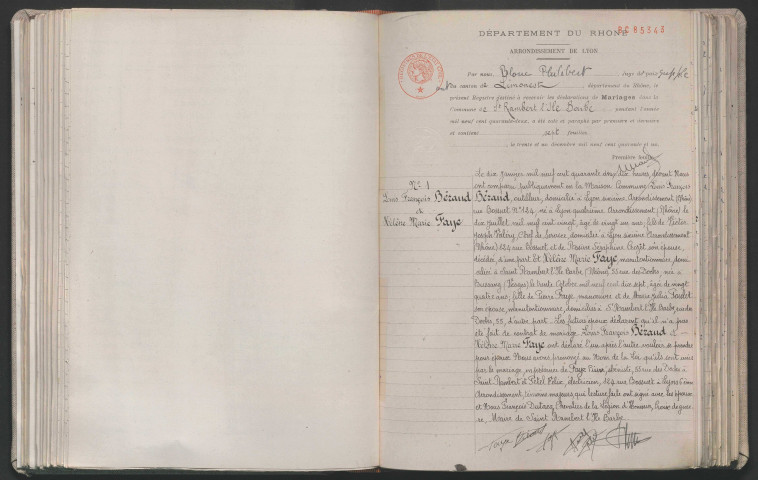 DÉPARTEMENT DU RHÔNE
85343
ARRONDISSEMENT DE LYON
Par nous, Philibert juge de paix
du canton de Limonest, département du Rhône, le
présent Registre destiné à recevoir les déclarations de Mariages dans la
Commune de St Rambert l'Ile Barbe pendant l'année
mil neuf cent quarante-deux, a été coté et paraphé par première et dernière
et contient sept feuilles
le trente et un décembre mil neuf cent quarante et un.
Première feuille
N° 1
Louis François Béraud
et
Hélène Marie Faye
Le dix janvier mil neuf cent quarante deux, dix heures, devant Nous
ont comparu publiquement en la Maison Commune, Louis François
Béraud, outilleur, domicilié à Lyon sixième Arrondissement (Rhône)
rue Bossuet N° 124, né à Lyon quatrième Arrondissement (Rhône) le
dix juillet mil neuf cent vingt, âgé de vingt un ans, fils de
Joseph, Chef de service, domicilié à Lyon sixième Arrondissement
(Rhône) 124 rue Bossuet et de Rosine Séraphine son épouse,
décédée, d'une part Et Hélène Marie Faye, manutentionnaire, domi-
ciliée à Saint Rambert l'Ile Barbe (Rhône) 55 rue des Docks, née à
Bussang (Vosges) le trente Octobre mil neuf cent dix sept, âgée de vingt
quatre ans, fille de Pierre Faye, manœuvre et de Marie Julia
son épouse, manutentionnaire, domiciliés à St Rambert l'Ile Barbe, rue des
Docks, 55, d'autre part. Les futurs époux déclarent qu'il n'a pas
été fait de contrat de mariage. Louis François Béraud et
Hélène Marie Faye ont déclaré l'un après l'autre vouloir se prendre
pour époux et Nous avons prononcé au Nom de la Loi qu'ils sont unis
par le mariage, en présence de Faye, 55 rue des Docks à
Saint Rambert et électricien, 124 rue Bossuet à Lyon 6ème
Arrondissement, témoins majeurs, qui lecture faite ont signé avec les époux
et Nous François Chevalier de la Légion d'Honneur, Croix de guer-
re, Maire de Saint Rambert l'Ile Barbe.
Faye Béraud